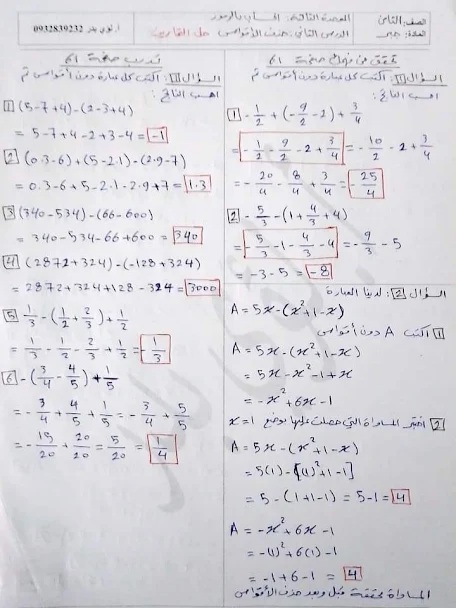 الصف: الثامن
المادة: جبر
الوحدة الثانية: الحساب بالرموز
الدرس الثاني: حذف الأقواس حل التمارين
0932839232
تحقق من فهمك صفحة 61
السؤال 1: اكتب كل عبارة دون أقواس ثم
احسب الناتج:
1 -1/2 + (-9/2 - 2) + 3/4
= -1/2 - 9/2 - 2 + 3/4 = -10/2 - 2 + 3/4
= -20/4 - 8/4 + 3/4 = -25/4
2 -5/3 - (1 + 4/3 + 4)
= -5/3 - 1 - 4/3 - 4 = -9/3 - 5
= -3 - 5 = -8
السؤال 2: لدينا العبارة
A = 5x - (x² + 1 - x)
1 اكتب A دون أقواس
A = 5x - (x² + 1 - x)
= 5x - x² - 1 + x
= -x² + 6x - 1
2 اختبر المساواة التي حصلت عليها بوضع x = 1
A = 5x - (x² + 1 - x)
= 5(1) - [(1)² + 1 - 1]
= 5 - (1 + 1 - 1) = 5 - 1 = 4
A = -x² + 6x - 1
= -(1)² + 6(1) - 1
= -1 + 6 - 1 = 4
المساواة محققة قبل وبعد حذف الأقواس
تدرب صفحة 61
السؤال 1: اكتب كل عبارة دون أقواس ثم
احسب الناتج:
1 (5 - 7 + 4) - (2 - 3 + 4)
= 5 - 7 + 4 - 2 + 3 - 4 = -1
2 (0.3 - 6) + (5 - 2.1) - (2.9 - 7)
= 0.3 - 6 + 5 - 2.1 - 2.9 + 7 = 1.3
3 (340 - 534) - (66 - 600)
= 340 - 534 - 66 + 600 = 340
4 (2872 + 324) - (-128 + 324)
= 2872 + 324 + 128 - 324 = 3000
5 1/3 - (1/2 + 2/3) + 1/2
= 1/3 - 1/2 - 2/3 + 1/2 = -1/3
6 -(3/4 - 4/5) + 1/5
= -3/4 + 4/5 + 1/5 = -3/4 + 5/5
= -15/20 + 20/20 = 5/20 = 1/4